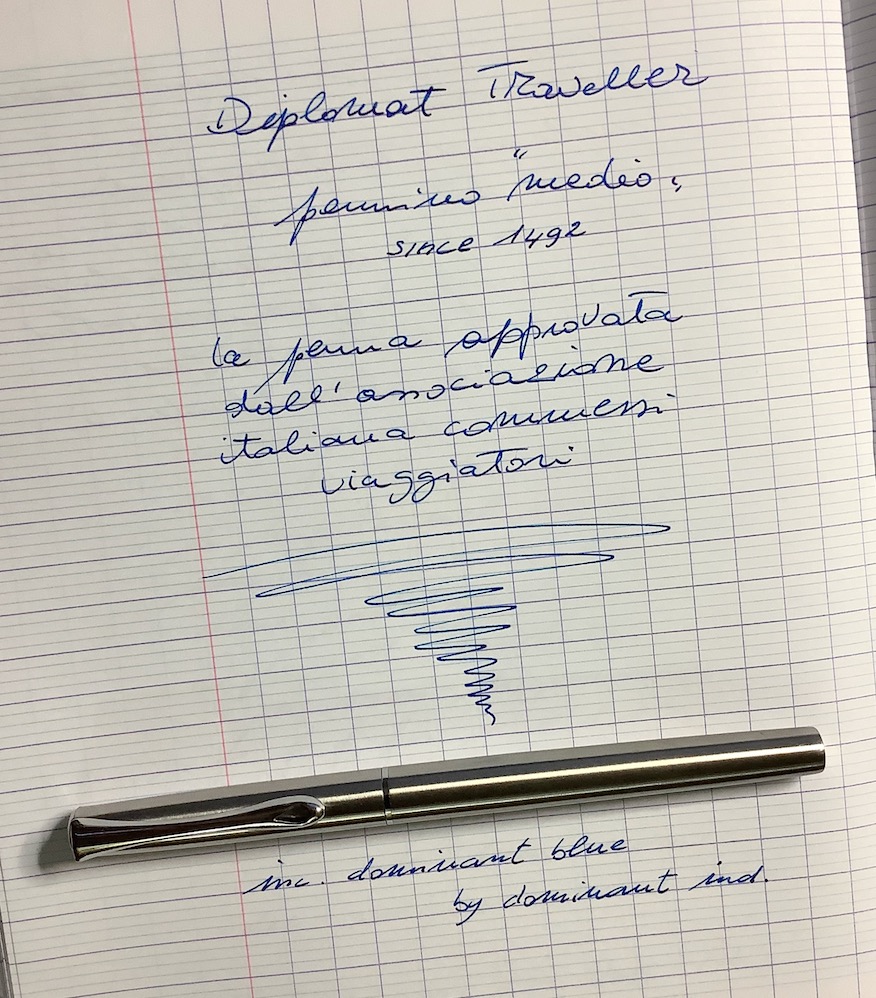 Diplomat Traveller
pennino "medio"
since 1492
la penna approvata
dall'associazione
italiana commessi
viaggiatori
inc. dominant blue
by dominant ind.